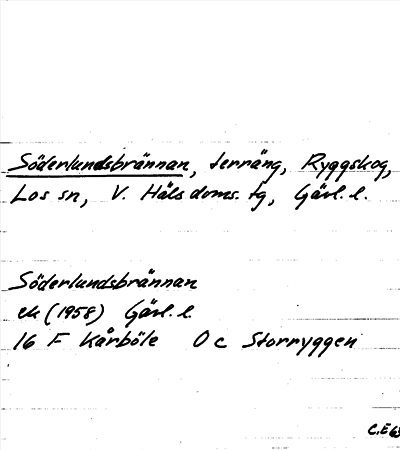 Söderlundsbrännan, terräng, Ryggskog,
Los sn, V. Häls doms. tg, Gävl. l.
Söderlundsbrännan
ek (1958) Gävl. l.
16 F Kårböle O c Storryggen
C.E 63